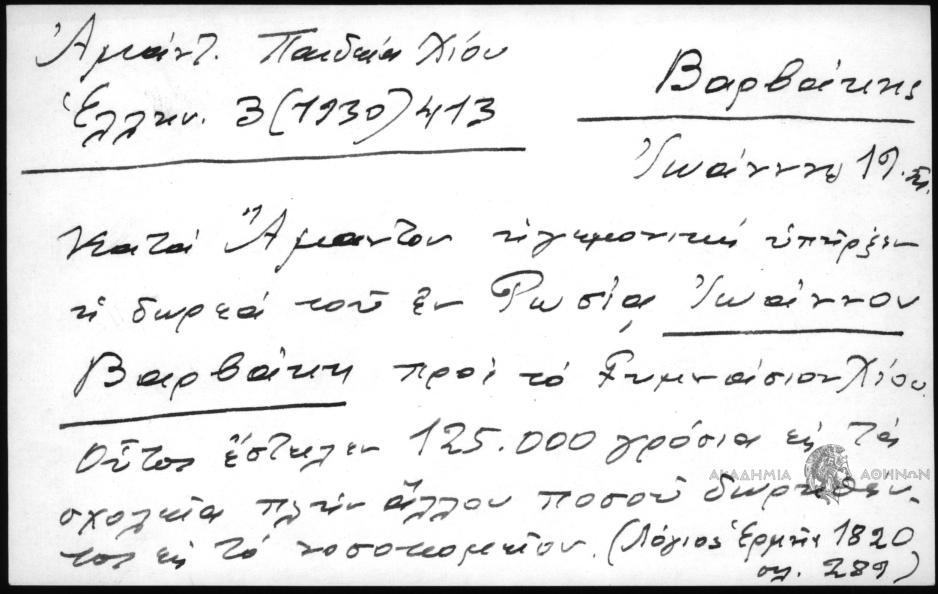 Ἀμάντ. Παιδεία Χίου
Ἑλλην. 3 (1930) 413
Βαρβάκης
Ἰωάννης 19.
Κατά Ἄμαντον ἡγεμονική ὑπῆρξεν
ἡ δωρεά τοῦ ἐν Ρωσίᾳ Ἰωάννου
Βαρβάκη πρός τό Γυμνάσιον Χίου.
Οὗτος ἔστειλεν 125.000 γρόσια εἰς τά
ΑΚΑΔΗΜΙΑ ΑΘΗΝΩΝ
σχολεῖα πλήν ἄλλου ποσοῦ δωρηθέν-
τος εἰς τό νοσοκομεῖον. (Λόγιος Ἑρμῆς 1820
σλ. 289)